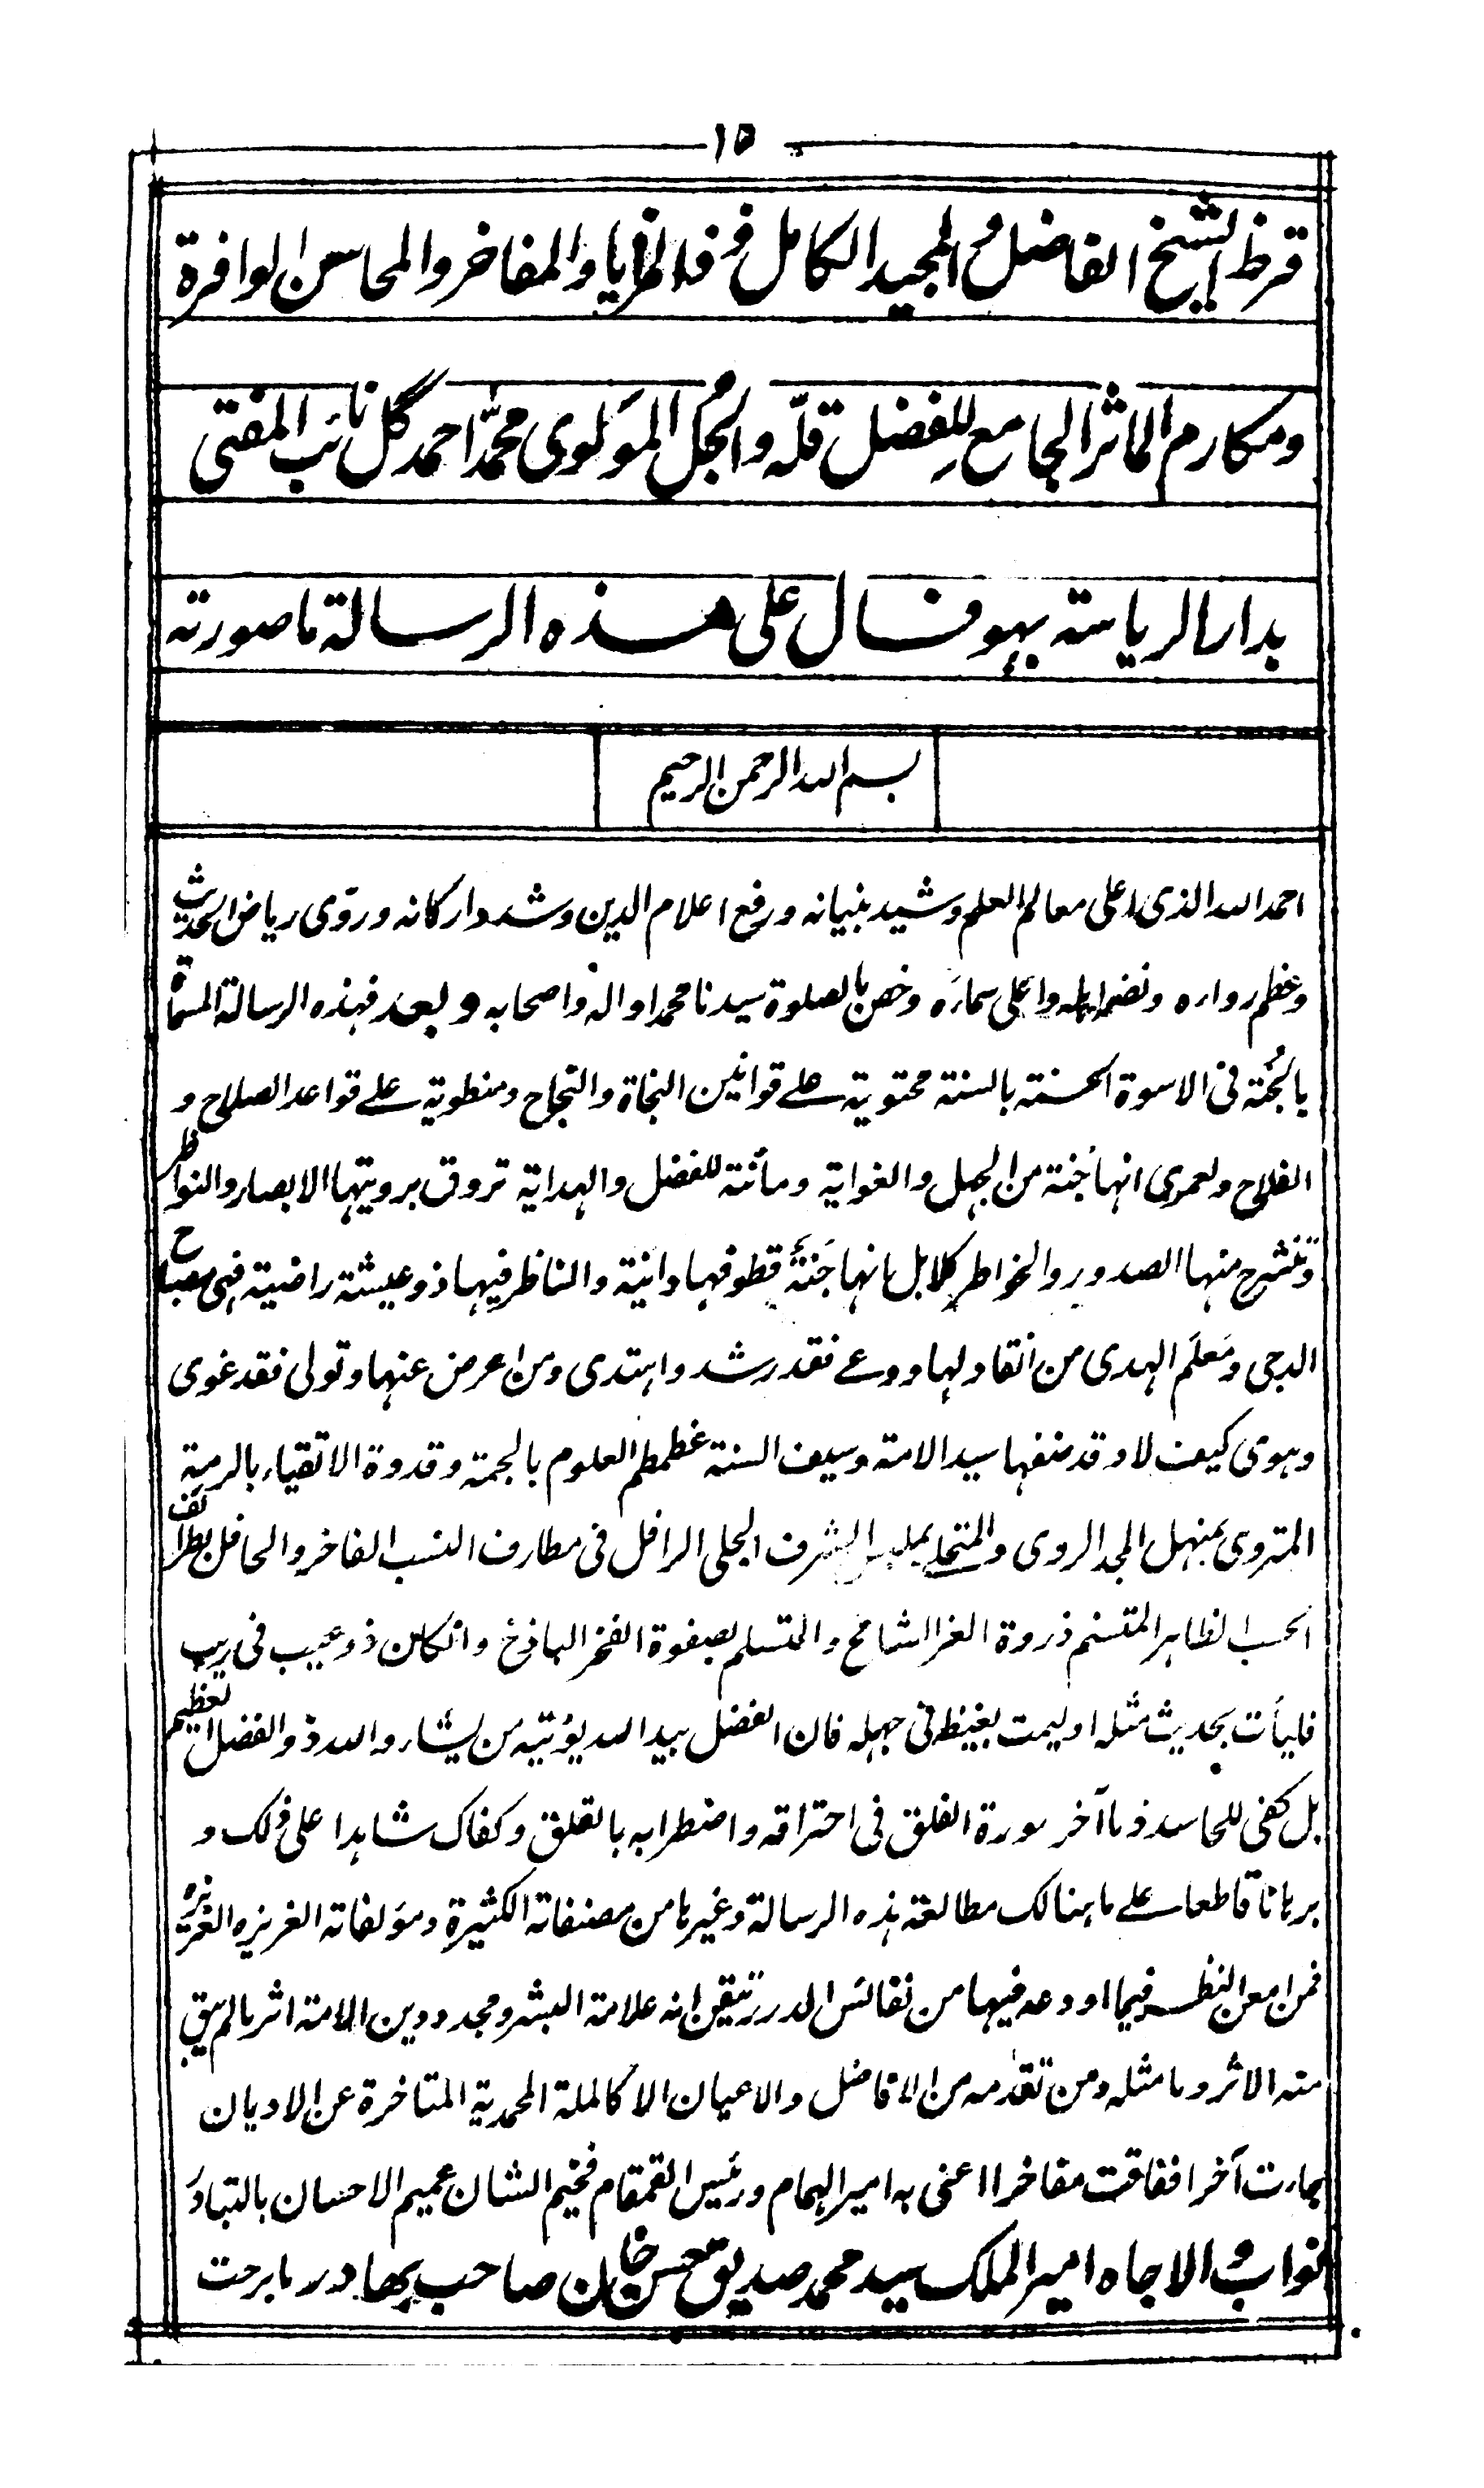 ١٥
قرظ الشيخ الفاضل و المجيد الكامل ذو المزايا والمفاخر والمحاسن الوافرة
ومكارم المآثر الجامع للفضل قلّه والجل المولوى محمد احمد گل نائب المفتى
بدار الرياسة بهوفال على هذه الرسالة ما صورته
بسم الله الرحمن الرحيم
احمد الله الذى اعلى معالم العلم وشيد بنيانه ورفع اعلام الدين وشدد اركانه وروّى رياض الحديث
وعظم رواره ونضر اهله واعلى سماءه وخص بالصلوة سيدنا محمدا واله واصحابه وبعد فهذه الرسالة المسماة
بالجُنة فى الاسوة الحسنة بالسنة محتوية على قوانين النجاة والنجاح ومنطوية على قواعد الصلاح و
الفلاح ولعمرى انها جُنة من الجهل والغواية ومأنة للفضل والهداية تروق برويتها الابصار والنواظر
وتنشرح منها الصدور والخواطر كلا بل انها جَنةٌ قطوفها دانية والناظر فيها ذو عيشة راضية فهى مصباح
الدجى ومَعلَم الهدى من انقاد لها ووعى فقد رشد واهتدى ومن اعرض عنها وتولى فقد غوى
وهوى كيف لا وقد صنفها سيد الامة وسيف السنة غطمطم العلوم بالجمة وقدوة الاتقياء بالرمة
المتروى بمنهل المجد الروى والمتحلى بملبس الشرف الجلى الرافل فى مطارف النسب الفاخر والحافل بطرائف
الحسب الظاهر المتسنم ذروة العز الشامخ والمتسلم بصفوة الفخر الباذخ وان كان ذو عيب فى ريب
فليأت بحديث مثله او ليمت بغيظ فى جهله فان الفضل بيد الله يؤتيه من يشاء والله ذو الفضل العظيم
بل كفى للحاسد ذما آخر سورة الفلق فى احتراقه واضطرابه بالقلق وكفاك شاهدا على ذلك و
برهانا قاطعا على ما هنالك مطالعة هذه الرسالة وغيرها من مصنفاته الكثيرة ومؤلفاته الغزيزه العزيزه
فمن امعن النظر فيما اودعه فيها من نفائس الدرر تيقن انه علامة البشر ومجدد دين الامة اثر ما لم يبق
منه الاثر وما مثله ومن تقدمه من الافاضل والاعيان الا كالملة المحمدية المتاخرة عن الاديان
جاءت آخرا ففاقت مفاخرا اعنى به امير الهمام ورئيس القمقام فخيم الشان عميم الاحسان بالتبادر
نواب والاجاه امير الملك سيد محمد صديق حسن خان صاحب بهادر ما برحت